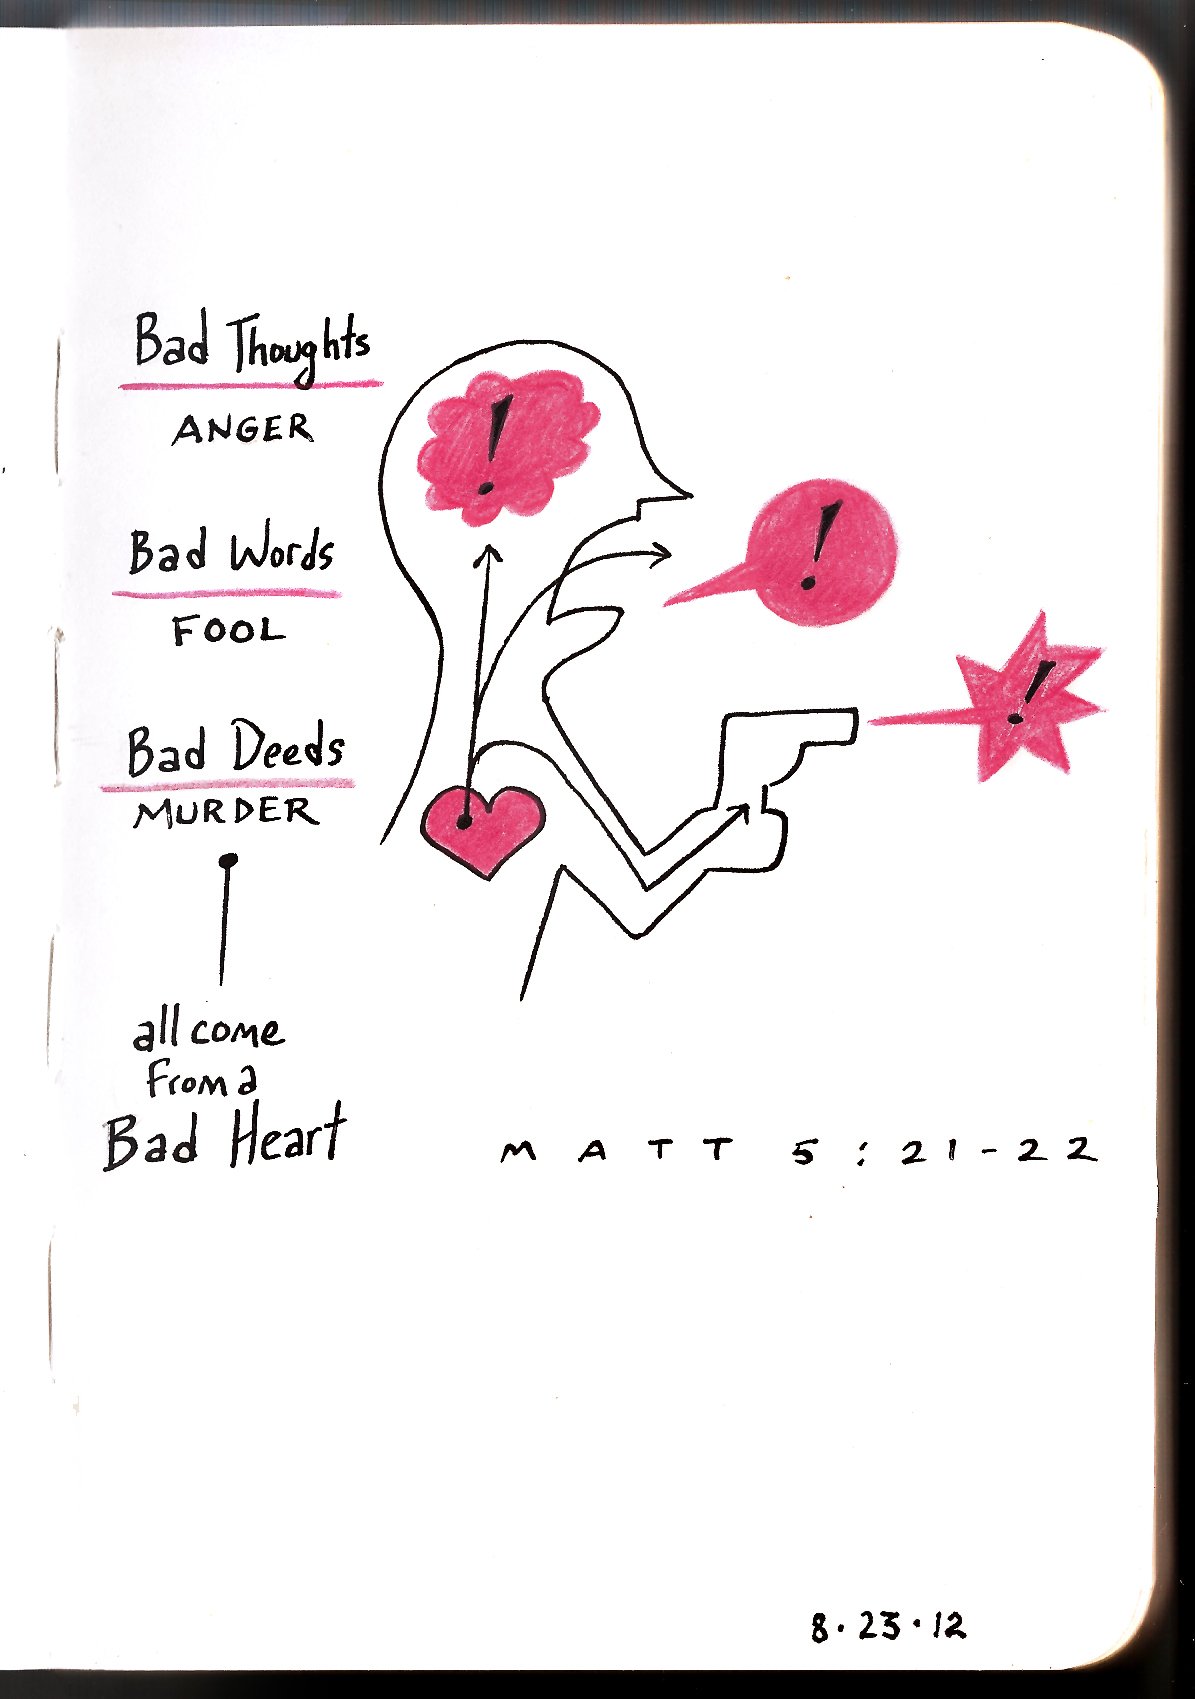 Bad Thoughts
ANGER
Bad Words
FOOL
Bad Deeds
MURDER
all come
from a
Bad Heart
MATT 5:21-22
!
!
!
8.23.12